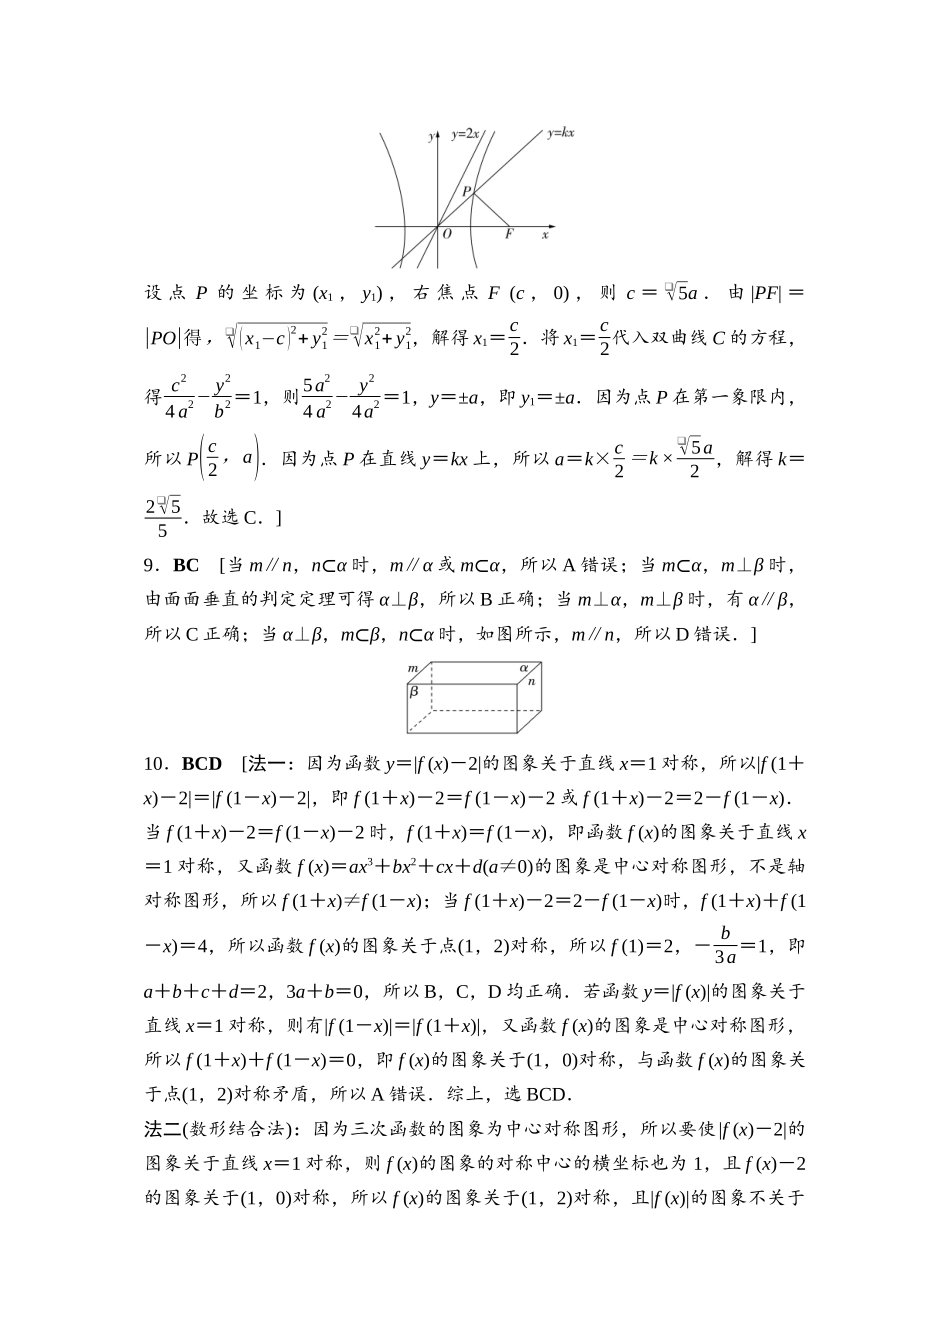 y y=2x y=kx
P
O F x
设点 P 的坐标为(x₁，y₁)，右焦点 F (c，0)，则 c＝√5a．由|PF|＝
|PO|得，√((x₁−c)²+y₁²)＝√(x₁²+y₁²)，解得 x₁＝c/2．将 x₁＝c/2代入双曲线 C 的方程，
得c²/4a²−y²/b²＝1，则5a²/4a²−y²/4a²＝1，y＝±a，即 y₁＝±a．因为点 P 在第一象限内，
所以 P(c/2，a)．因为点 P 在直线 y＝kx 上，所以 a＝k×c/2＝k×√5a/2，解得 k＝
2√5/5．故选 C．]
9．BC [当 m∥n，n⊂α 时，m∥α 或 m⊂α，所以 A 错误；当 m⊂α，m⊥β 时，
由面面垂直的判定定理可得 α⊥β，所以 B 正确；当 m⊥α，m⊥β 时，有 α∥β，
所以 C 正确；当 α⊥β，m⊂β，n⊂α 时，如图所示，m∥n，所以 D 错误．]
m α
β n
10．BCD [法一：因为函数 y＝|f (x)－2|的图象关于直线 x＝1 对称，所以|f (1＋
x)－2|＝|f (1－x)－2|，即 f (1＋x)－2＝f (1－x)－2 或 f (1＋x)－2＝2－f (1－x)．
当 f (1＋x)－2＝f (1－x)－2 时，f (1＋x)＝f (1－x)，即函数 f (x)的图象关于直线 x
＝1 对称，又函数 f (x)＝ax³＋bx²＋cx＋d(a≠0)的图象是中心对称图形，不是轴
对称图形，所以 f (1＋x)≠f (1－x)；当 f (1＋x)－2＝2－f (1－x)时，f (1＋x)＋f (1
－x)＝4，所以函数 f (x)的图象关于点(1，2)对称，所以 f (1)＝2，－b/3a＝1，即
a＋b＋c＋d＝2，3a＋b＝0，所以 B，C，D 均正确．若函数 y＝|f (x)|的图象关于
直线 x＝1 对称，则有|f (1－x)|＝|f (1＋x)|，又函数 f (x)的图象是中心对称图形，
所以 f (1＋x)＋f (1－x)＝0，即 f (x)的图象关于(1，0)对称，与函数 f (x)的图象关
于点(1，2)对称矛盾，所以 A 错误．综上，选 BCD．
法二(数形结合法)：因为三次函数的图象为中心对称图形，所以要使|f (x)－2|的
图象关于直线 x＝1 对称，则 f (x)的图象的对称中心的横坐标也为 1，且 f (x)－2
的图象关于(1，0)对称，所以 f (x)的图象关于(1，2)对称，且|f (x)|的图象不关于